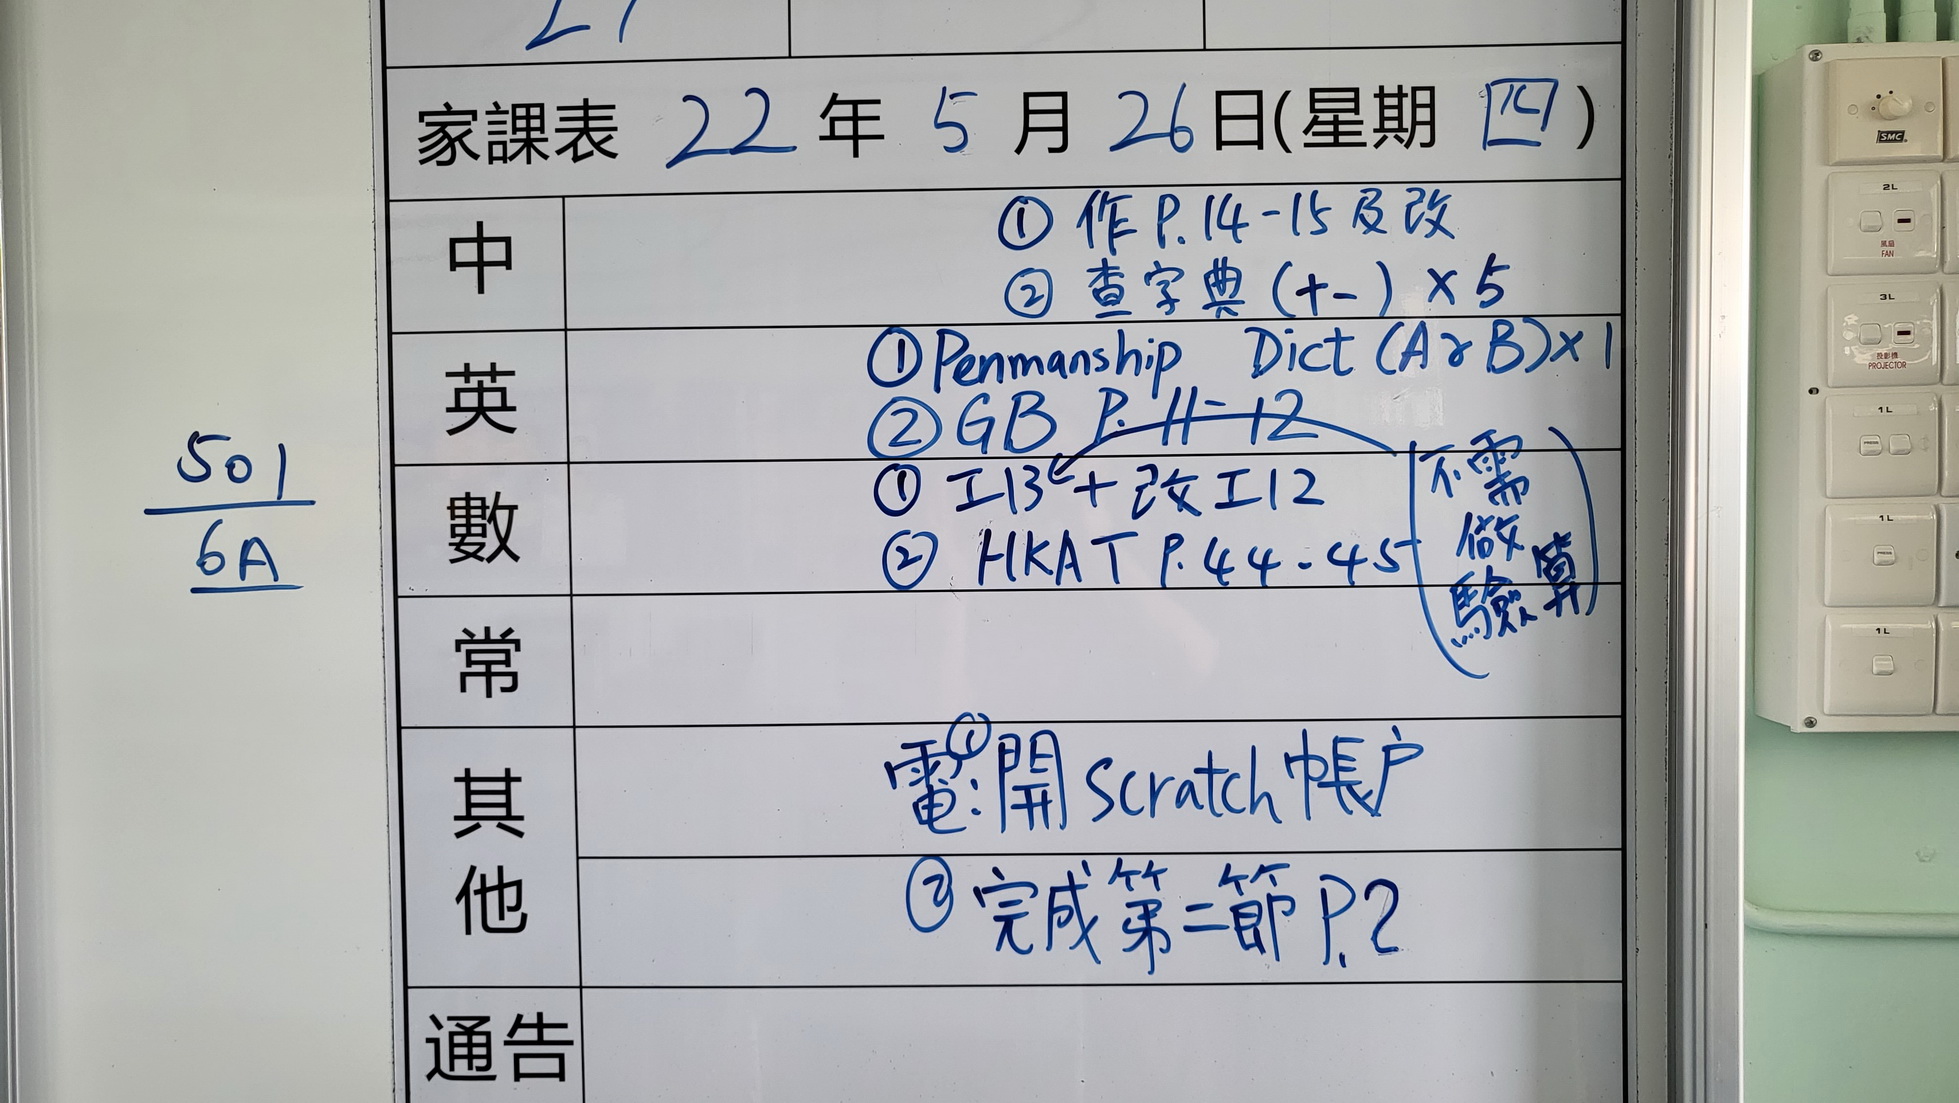 家課表 22 年 5 月 26 日(星期 四)
中
① 作 P.14-15 及改
② 查字典 (十一) × 5
英
① Penmanship Dict (A&B)×1
② GB P. 11-12
數
① 工13 + 改工12
② HKAT P.44-45
(不需
做
驗算)
常
其他
電:①開 Scratch 帳户
② 完成第二節 P.2
通告
501
6A
SMC
2L
風扇
FAN
3L
投影機
PROJECTOR
1L
PRESS
1L
PRESS
1L